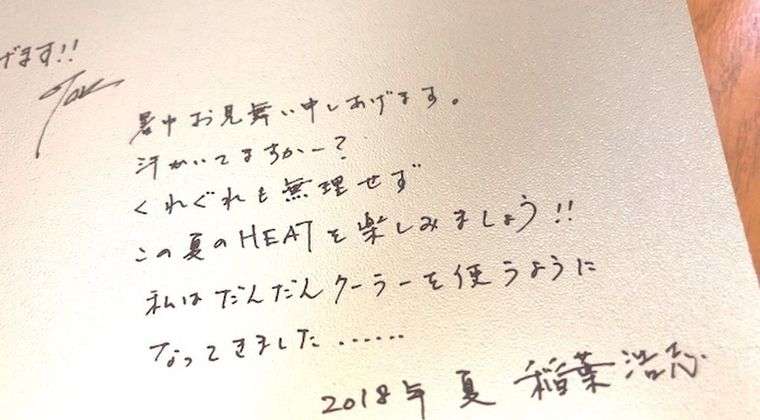 げます!!
Tak
暑中お見舞い申しあげます。
汗かいてますかー?
くれぐれも無理せず
この夏のHEATを楽しみましょう!!
私はだんだんクーラーを使うように
なってきました……
2018年 夏 稲葉浩志